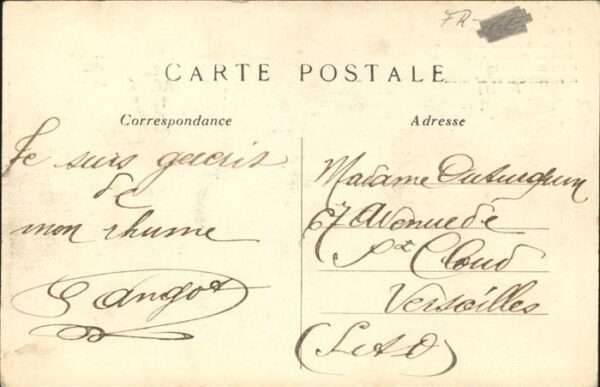 FR-
CARTE POSTALE
Correspondance
Je suis gueris
de
mon rhume
G Langot
Adresse
Madame
67 Avenue de
St Cloud
Versailles
(S et O)